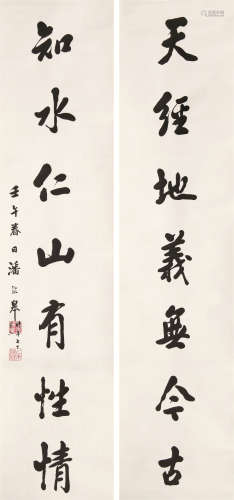 天經地義無今古
知水仁山有性情
壬午春日潘齡皋